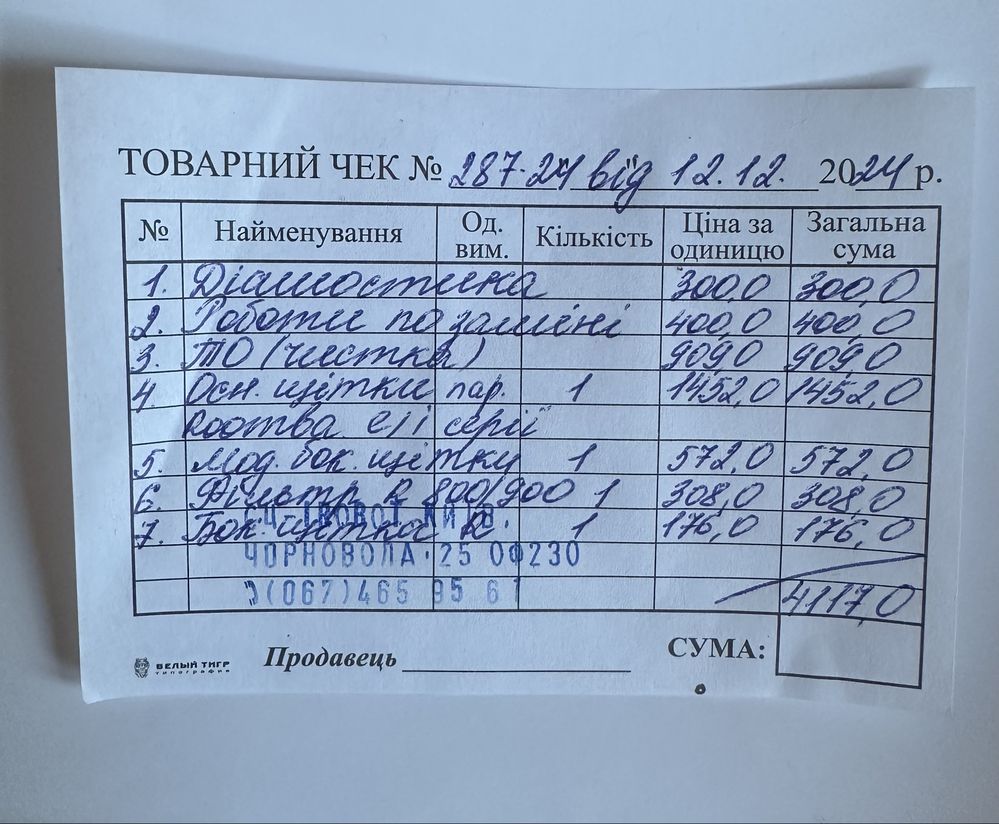 ТОВАРНИЙ ЧЕК № 287-24 від 12.12. 2024 р.
№ Найменування Од. вим. Кількість Ціна за одиницю Загальна сума
1. Діагностика 300,0 300,0
2. Роботи по заміні 400,0 400,0
3. ТО (чистка) 909,0 909,0
4. Осн. щітки пар. 1 1452,0 1452,0
серії
5. Мод. бок. щітки 1 572,0 572,0
6. Фільтр R 800/900 1 308,0 308,0
7. Бок. щітка R 1 176,0 176,0
КИЇВ.
ЧОРНОВОЛА 25 ОФ230
(067)465 95 61
4117,0
БЕЛЫЙ ТИГР
типография
Продавець
СУМА: